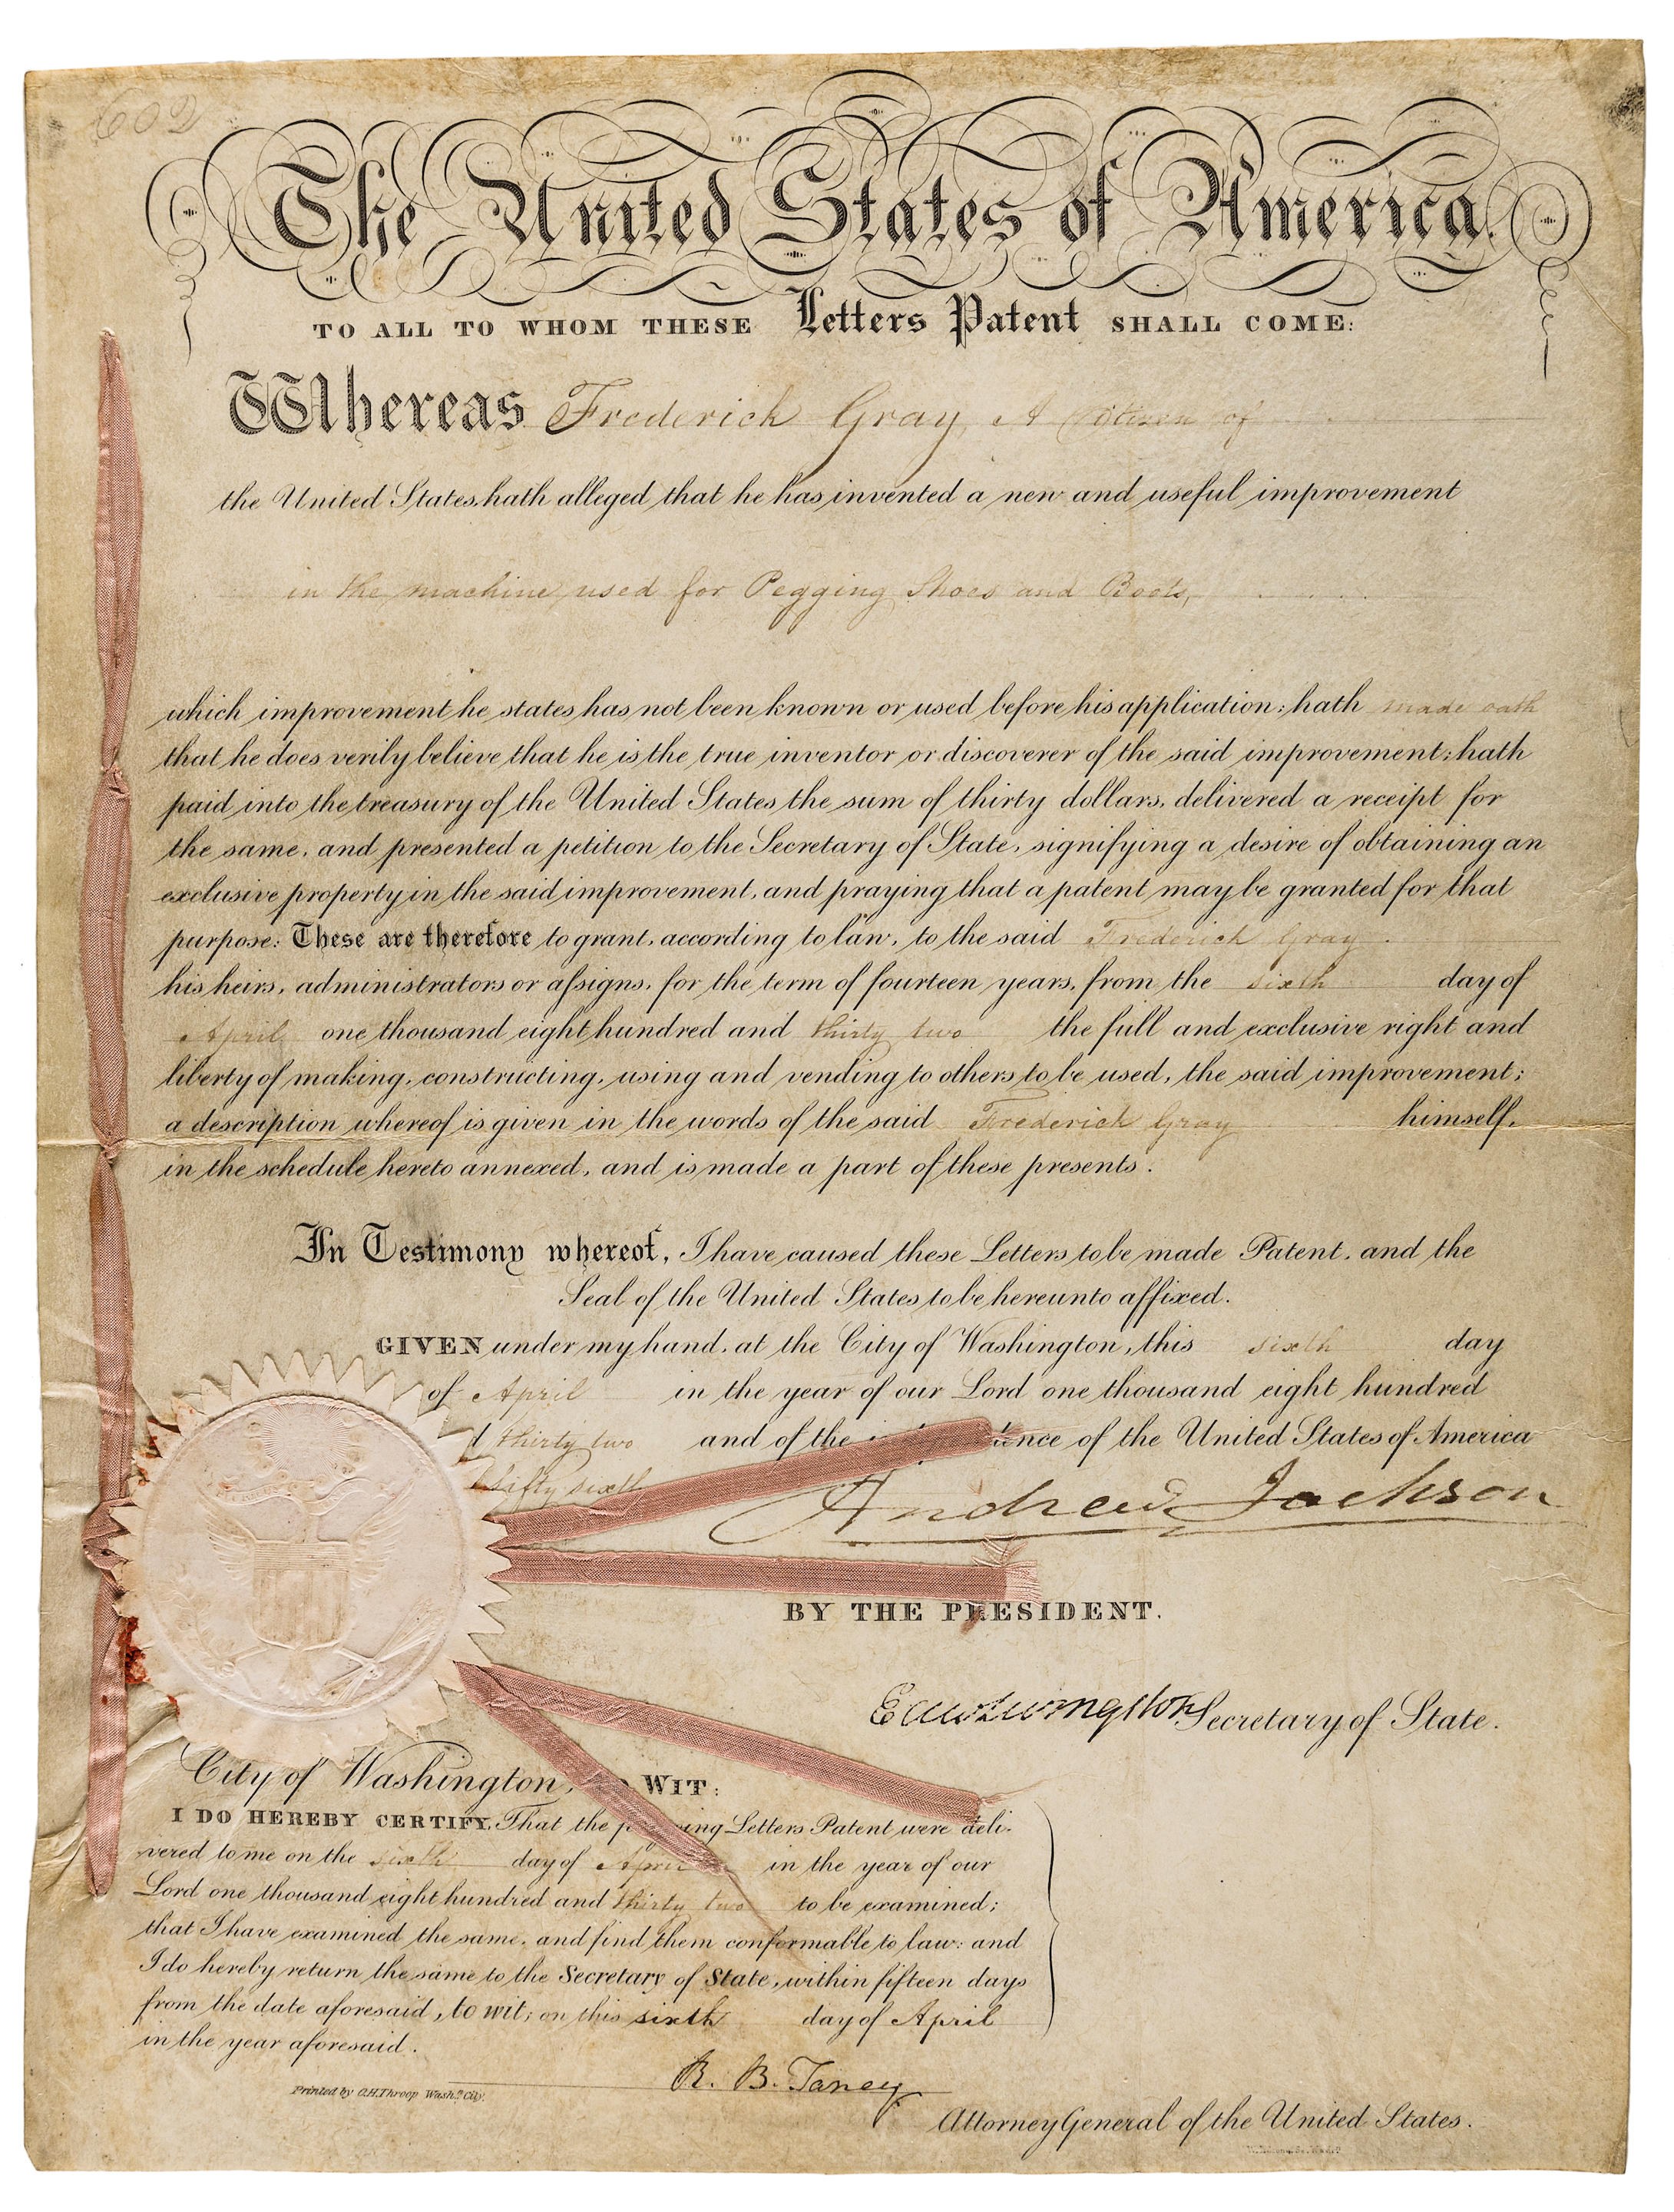 602
The United States of America.
TO ALL TO WHOM THESE Letters Patent SHALL COME:
Whereas Frederick Gray, A Citizen of
the United States, hath alleged that he has invented a new and useful improvement
in the machine used for Pegging Shoes and Boots,
which improvement he states has not been known or used before his application; hath made oath
that he does verily believe that he is the true inventor or discoverer of the said improvement; hath
paid into the treasury of the United States the sum of thirty dollars, delivered a receipt for
the same, and presented a petition to the Secretary of State, signifying a desire of obtaining an
exclusive property in the said improvement, and praying that a patent may be granted for that
purpose: These are therefore to grant, according to law, to the said Frederick Gray
his heirs, administrators or assigns, for the term of fourteen years, from the sixth day of
April one thousand eight hundred and thirty two the full and exclusive right and
liberty of making, constructing, using and vending to others to be used, the said improvement;
a description whereof is given in the words of the said Frederick Gray himself,
in the schedule hereto annexed, and is made a part of these presents.
In Testimony whereof, I have caused these Letters to be made Patent, and the
Seal of the United States to be hereunto affixed.
GIVEN under my hand, at the City of Washington, this sixth day
of April in the year of our Lord one thousand eight hundred
thirty two and of the ence of the United States of America
fifty sixth
Andrew Jackson
BY THE PRESIDENT.
Edw Livingston Secretary of State.
City of Washington, WIT:
I DO HEREBY CERTIFY, That the Letters Patent were deli-
vered to me on the sixth day of April in the year of our
Lord one thousand eight hundred and thirty two to be examined;
that I have examined the same, and find them conformable to law: and
I do hereby return the same to the Secretary of State, within fifteen days
from the date aforesaid, to wit; on this sixth day of April
in the year aforesaid.
R. B. Taney
Printed by O.H.Throop Washn. City.
Attorney General of the United States.